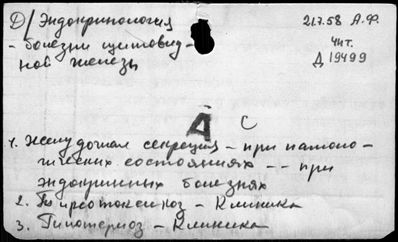 Д/ Эндокринология
- болезни щитовид-
ной железы
21.7.58 А.Ф.
Чит.
Д 19499
А С
1. Желудочная секреция - при патоло-
гических состояниях -- при
эндокринных болезнях
2. Тиреотоксикоз - Клиника
3. Гипотериоз - Клиника